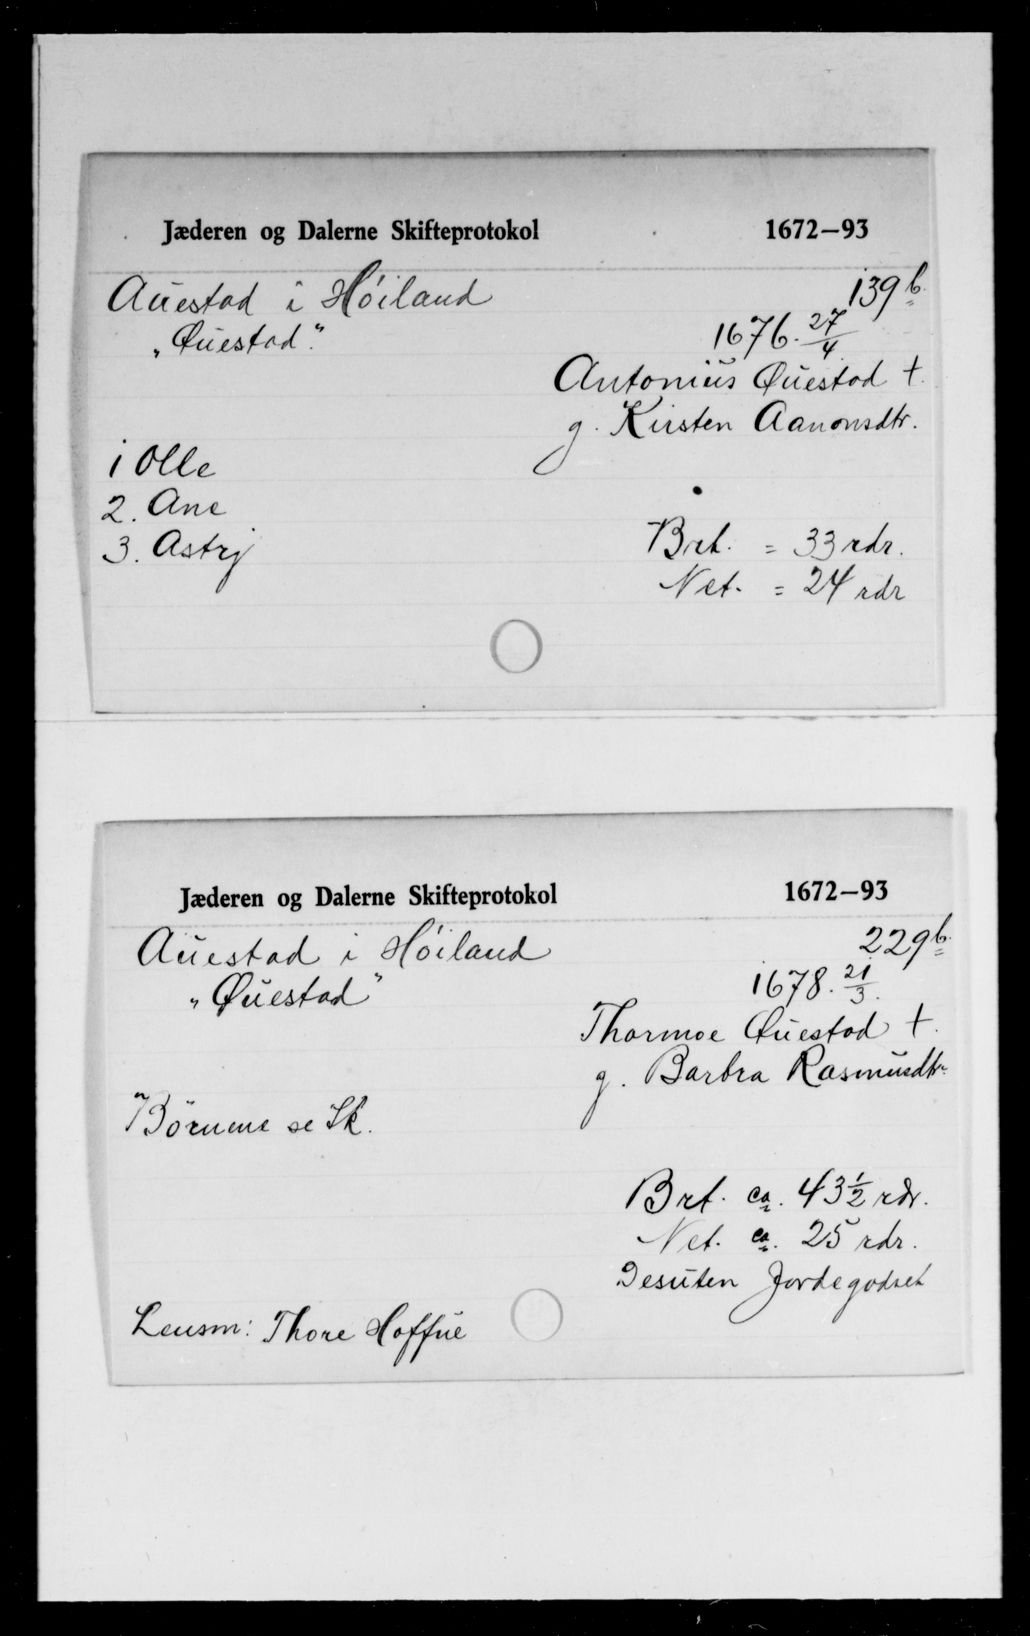 Jæderen og Dalerne Skifteprotokol 1672–93
Aŭestad i Höiland 139 b.
„Øŭestad." 1676. 27/4.
Antoniŭs Øŭestad †.
g. Kirsten Aanonsdtr.
1 Olle
2. Ane
3. Astrj
Brt. = 33 rdr.
Net. = 24 rdr
Jæderen og Dalerne Skifteprotokol 1672–93
Aŭestad i Höiland 229 b.
„Øŭestad" 1678. 21/3.
Thormoe Øŭestad †.
g. Barbra Rasmŭsdtr.
Börnene se Sk.
Brt. ca. 43 1/2 rdr.
Net. ca. 25 rdr.
Desŭten Jordegodset
Lensm: Thore Hoffŭe